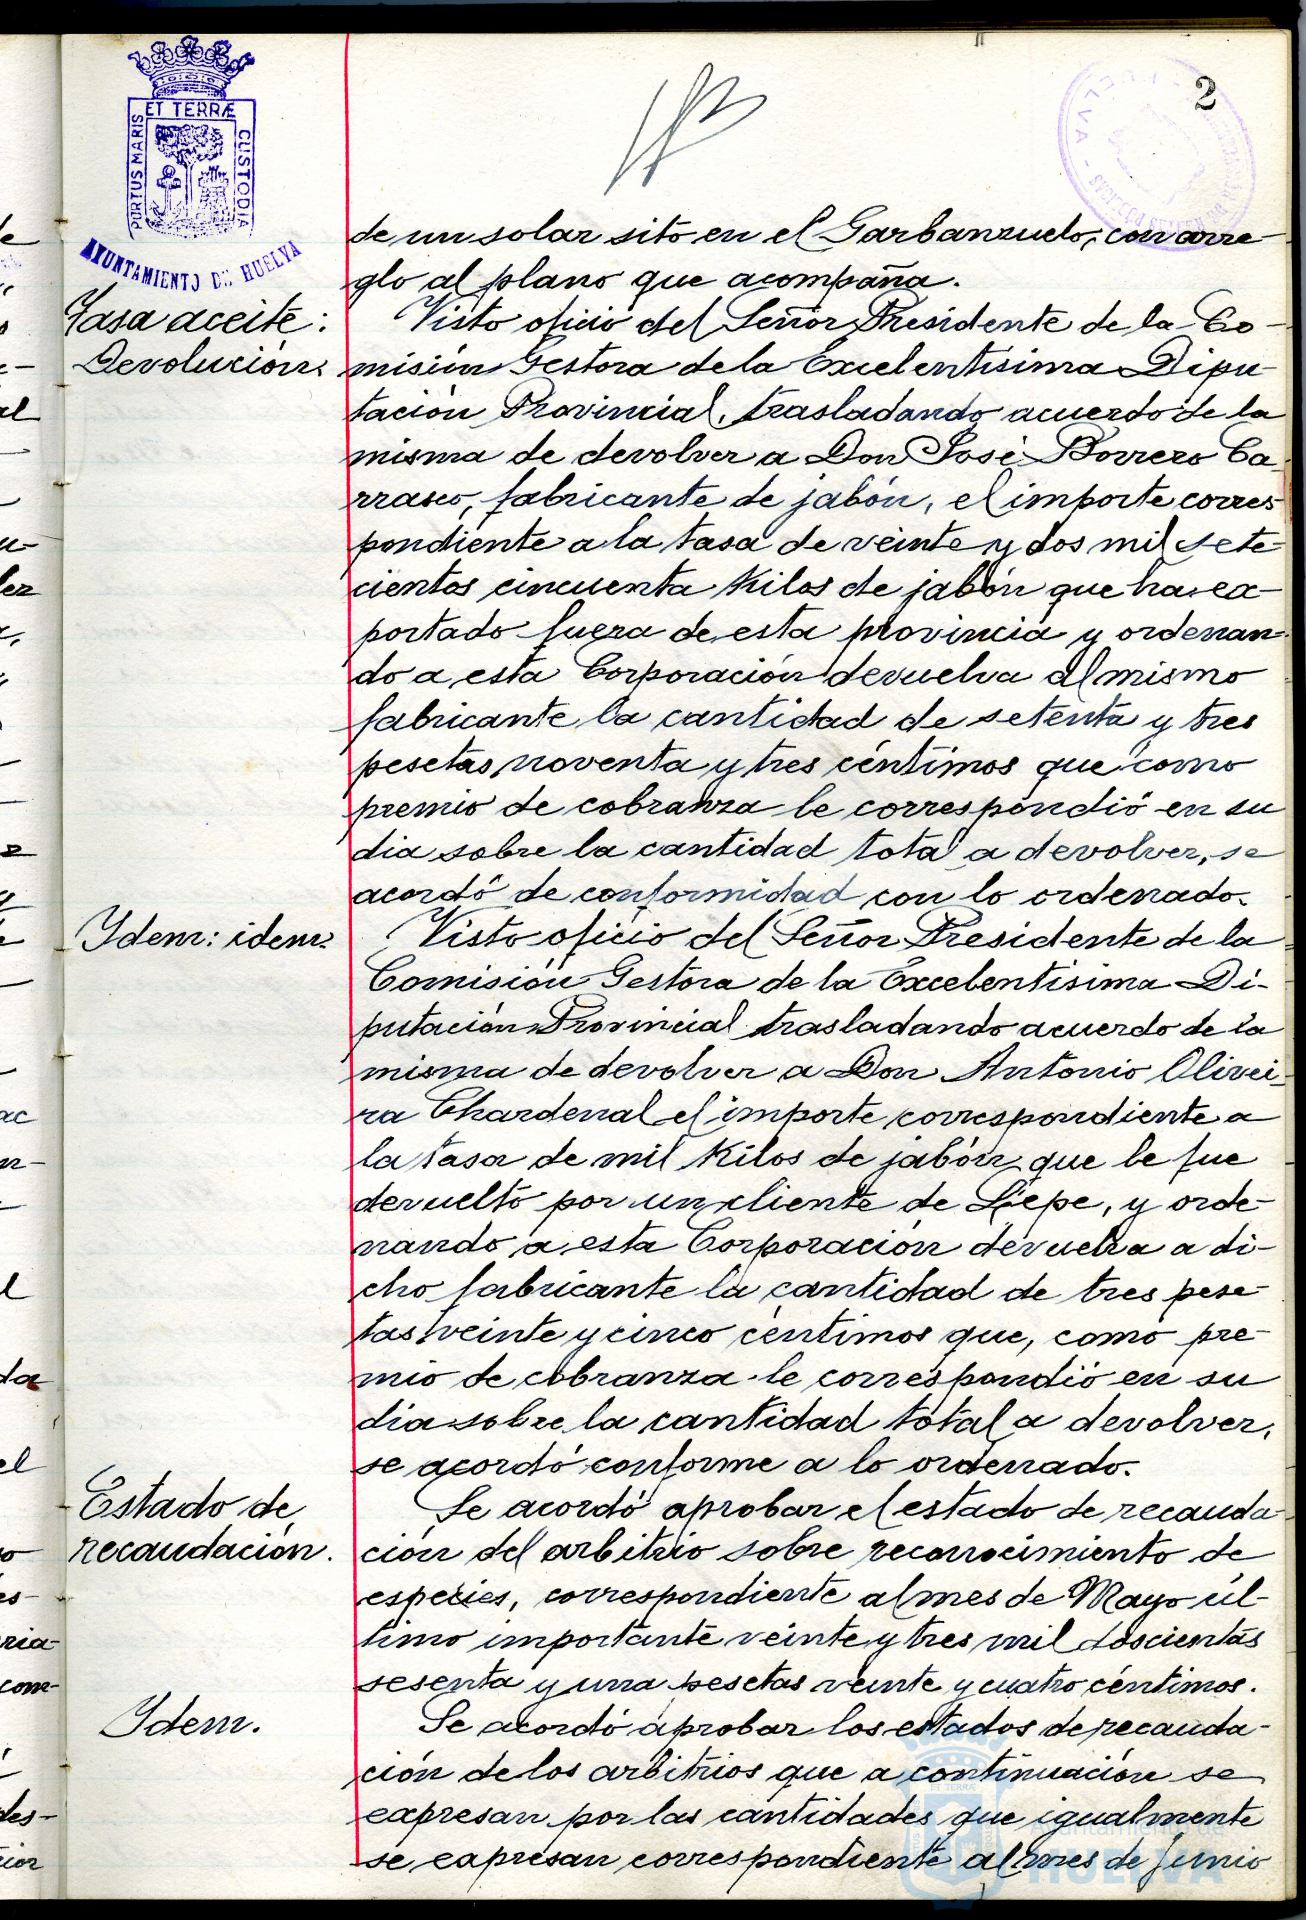 2
ET TERRÆ
PORTUS MARIS
CUSTODIA
AYUNTAMIENTO DE HUELVA
de un solar sito en el Garbanzuelo, con arre-
glo al plano que acompaña.
Tasa aceite:
Devolución.
Visto oficio del Señor Presidente de la Co-
misión Gestora de la Excelentísima Dipu-
tación Provincial, trasladando acuerdo de la
misma de devolver a Don José Borrero Ca-
rrasco, fabricante de jabón, el importe corres-
pondiente a la tasa de veinte y dos mil sete-
cientos cincuenta Kilos de jabón que ha ex-
portado fuera de esta provincia y ordenan-
do a esta Corporación devuelva al mismo
fabricante la cantidad de setenta y tres
pesetas noventa y tres céntimos que como
premio de cobranza le correspondió en su
dia sobre la cantidad total a devolver, se
acordó de conformidad con lo ordenado.
Ydem: idem.
Visto oficio del Señor Presidente de la
Comisión Gestora de la Excelentísima Di-
putación Provincial trasladando acuerdo de la
misma de devolver a Don Antonio Olivei-
ra Chardenal el importe correspondiente a
la tasa de mil Kilos de jabón que le fue
devuelto por un cliente de Lepe, y orde-
nando a esta Corporación devuelva a di-
cho fabricante la cantidad de tres pese-
tas veinte y cinco céntimos que, como pre-
mio de cobranza le correspondió en su
dia sobre la cantidad total a devolver,
se acordó conforme a lo ordenado.
Estado de
recaudación.
Se acordó aprobar el estado de recauda-
ción del arbitrio sobre reconocimiento de
especies, correspondiente al mes de Mayo úl-
timo importante veinte y tres mil doscientas
sesenta y una pesetas veinte y cuatro céntimos.
Ydem.
Se acordó aprobar los estados de recauda-
ción de los arbitrios que a continuación se
expresan por las cantidades que igualmente
se expresan correspondiente al mes de Junio
Ayuntamiento de
HUELVA